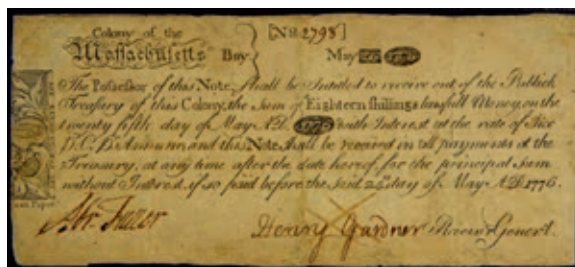 Colony of the [No 2798]
Massachusetts Bay May 25 1775
The Possessor of this Note, shall be Intitled to receive out of the Publick
Treasury of this Colony, the Sum of Eighteen shillings lawfull Money, on the
twenty fifth day of May A.D. 1776 with Interest at the rate of Six
P. C. P. Annum and this Note shall be received in all payments at the
Treasury, at any time after the date hereof, for the principal Sum
without Interest, if so paid before the said 24th day of May A.D. 1776.
Abr. Fuller
Henry Gardner Receiver General.